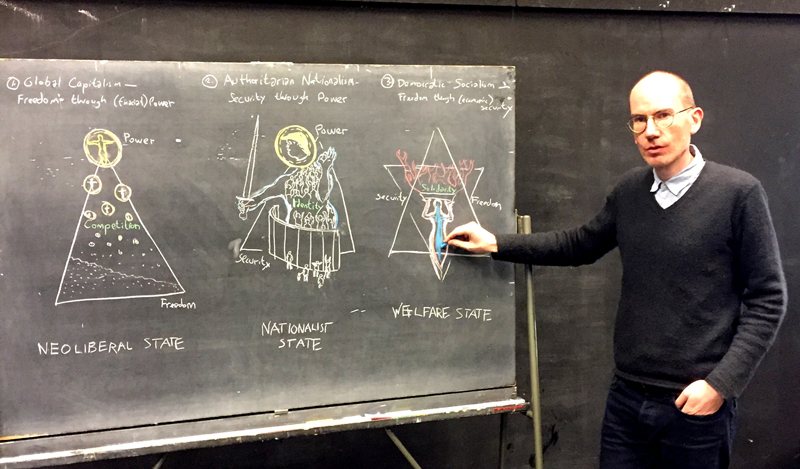 ① Global Capitalism —
Freedom through (financial) Power
Power
Competition
Freedom
NEOLIBERAL STATE
② Authoritarian Nationalism -
Security through Power
Power
Identity
Security
NATIONALIST
STATE
③ Democratic Socialism -
Freedom through (economic)
security
Security
Solidarity
Freedom
WELFARE STATE